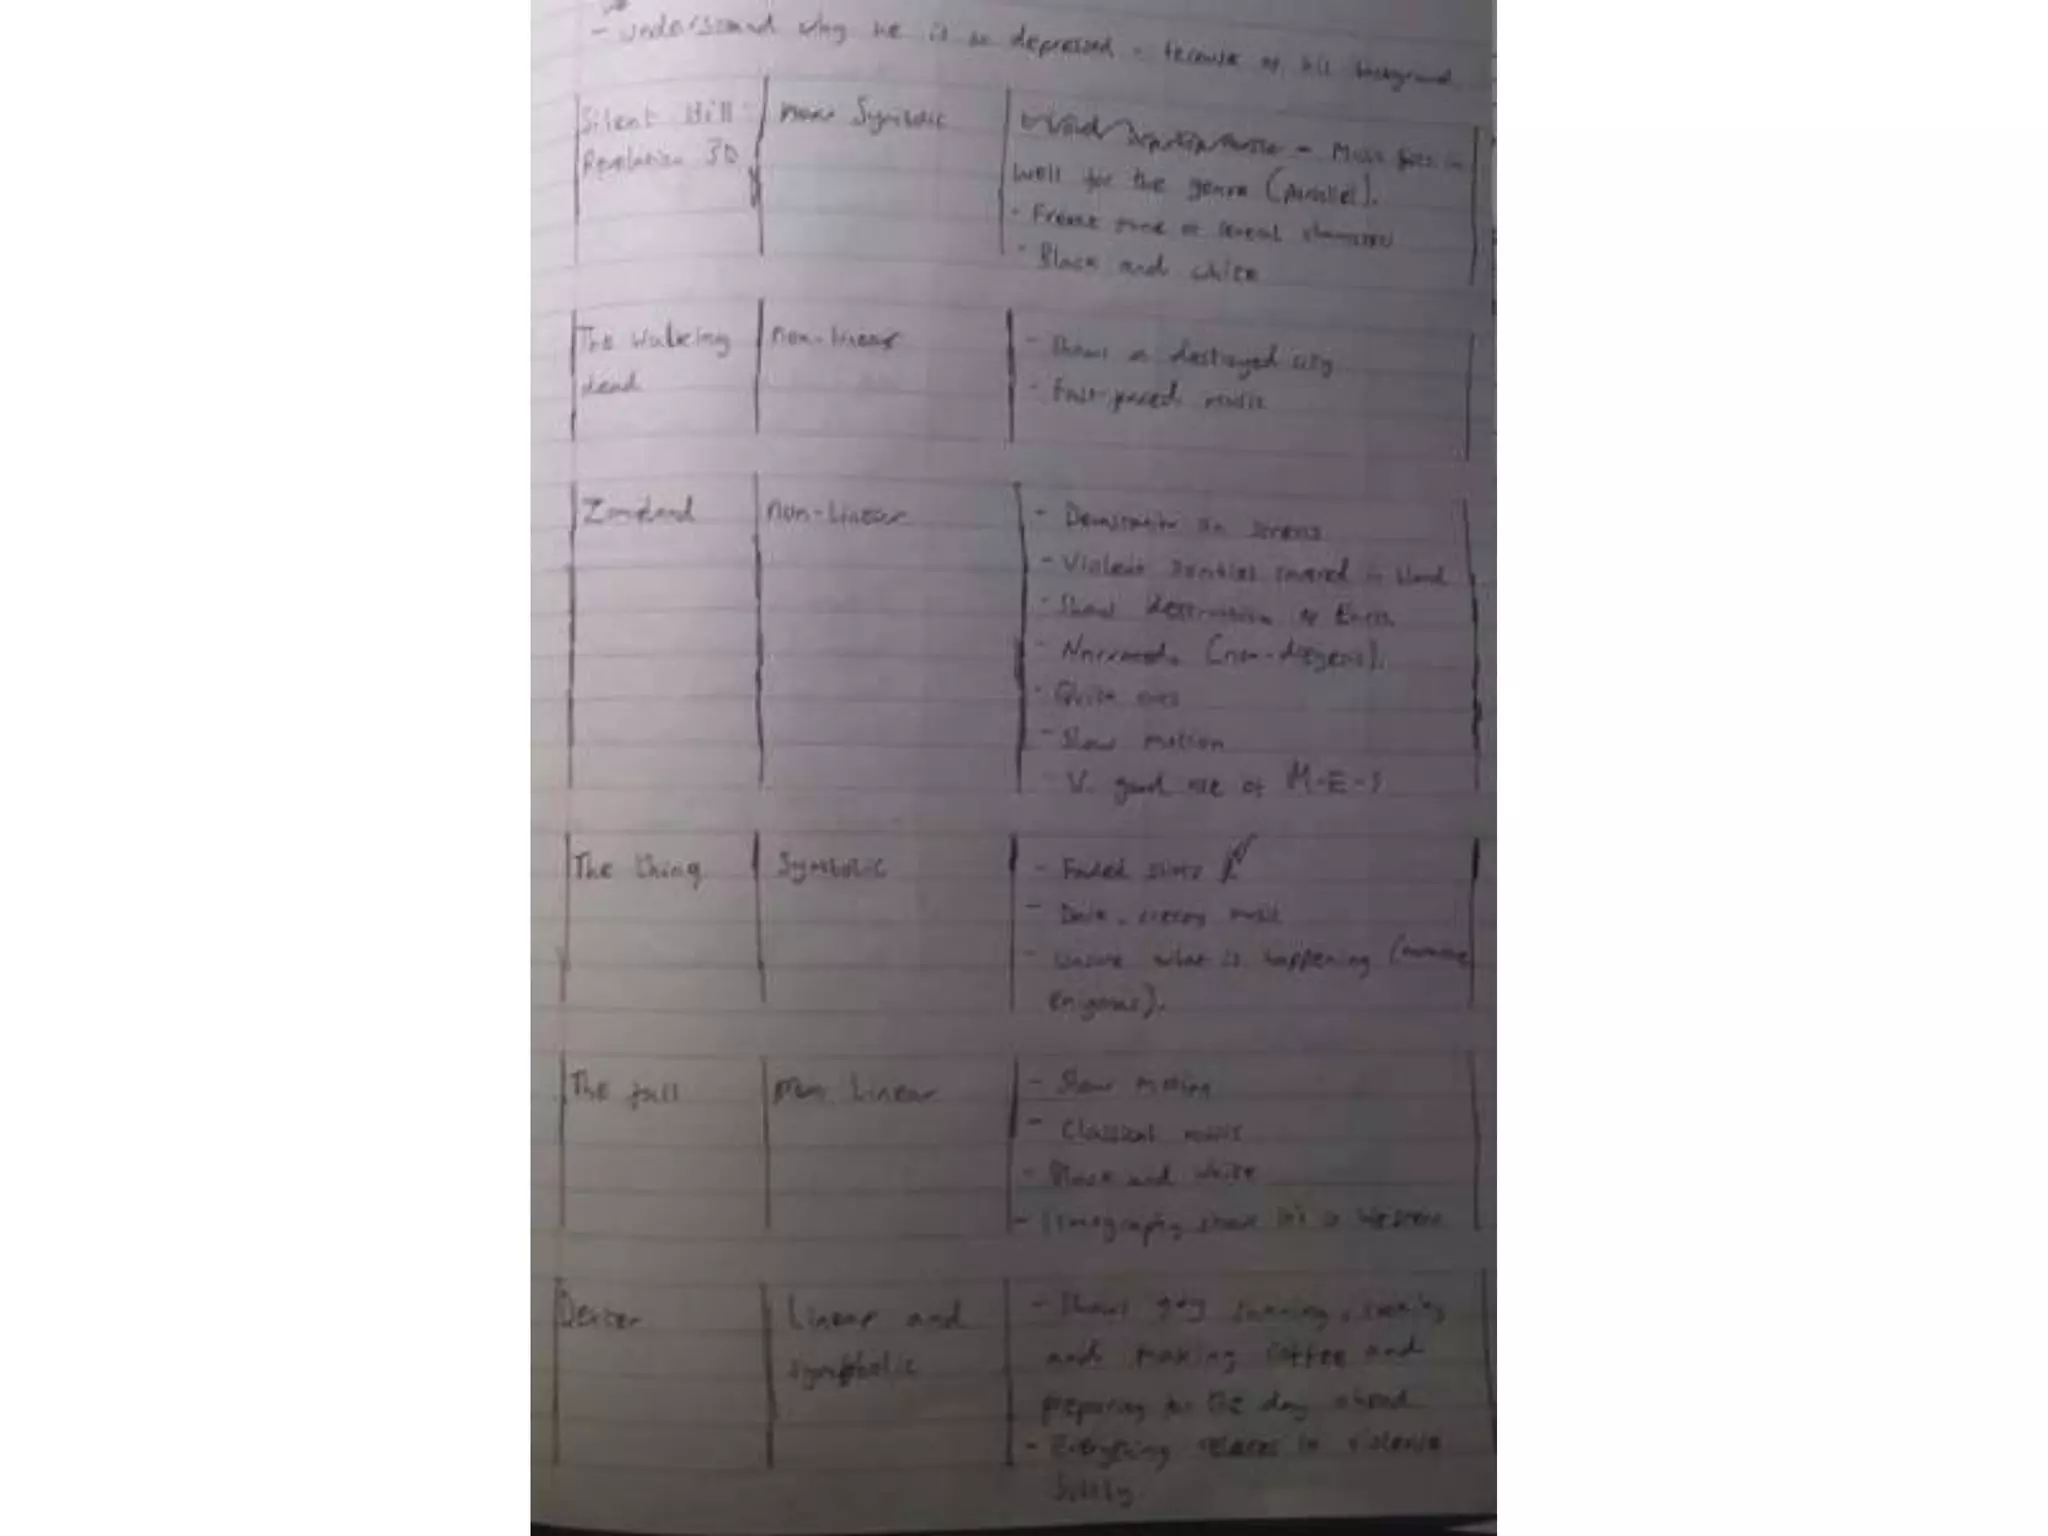 - understand why he is so depressed - because of his background
Silent Hill
Revelation 3D
Symbolic
- Music fits in
well for the genre (parallel).
- Freeze frame to reveal characters
- Black and white
The Walking
dead
non-linear
- Shows a destroyed city
- Fast-paced music
non-Linear
- screens
- Violent zombies covered in blood
- Shows destruction of Earth
- (non-diegetic).
- Quick cuts
- Slow motion
- V. good use of M-E-S
The thing
Symbolic
- Faded
- Dark, creepy music
- Unsure what is happening (narrative
enigmas).
The fall
Linear
- Slow motion
- Classical music
- Black and white
- shows it's a western
Dexter
Linear and
symbolic
- Shows guy
and making coffee and
preparing for the day ahead
- Everything relates to violence